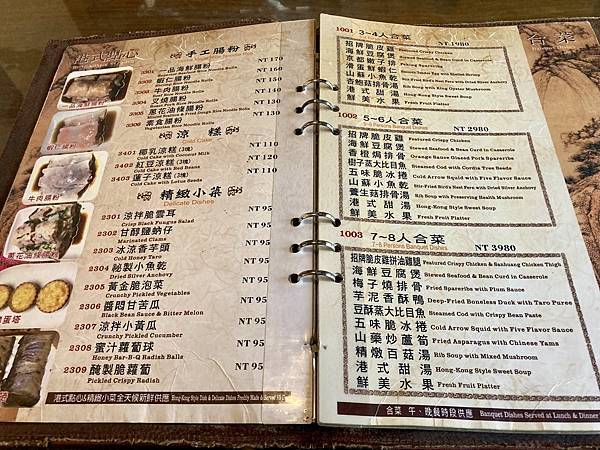 港式點心
手工腸粉
3301 一品海鮮腸粉 NT 170
3302 蝦仁腸粉 NT 160
3303 牛肉腸粉 NT 150
3304 叉燒腸粉 NT 130
3305 蔥花油條腸粉 NT 140
3306 素食腸粉 NT 130
涼糕
3401 椰乳涼糕(3塊) NT 110
Cold Cake with Coconut Milk
3402 紅豆涼糕(3塊) NT 120
Cold Cake with Red Beans
3403 蓮子涼糕(3塊) NT 110
Cold Cake with Lotus Seeds
精緻小菜
Delicate Dishes
2301 涼拌脆雲耳 NT 95
Crispy Black Fungus Salad
2302 甘醇鹽蚋仔 NT 95
Marinated Clams
2303 冰涼香芋頭 NT 95
Cold Honey Taro
2304 祕製小魚乾 NT 95
Dried Silver Anchovy
2305 黃金脆泡菜 NT 95
Crunchy Pickled Vegetables
2306 醬悶甘苦瓜 NT 95
Black Bean Sauce & Bitter Melon
2307 涼拌小黃瓜 NT 95
Crunchy Pickled Cucumber
2308 蜜汁蘿蔔球 NT 95
Honey Bar-B-Q Radish Balls
2309 醃製脆蘿蔔 NT 95
Pickled Crispy Radish
港式點心&精緻小菜全天候新鮮供應
品海鮮腸粉
蝦仁腸粉
牛肉腸粉
蔥花油條腸粉
蛋塔
合菜
1001 3~4人合菜 NT 1980
招牌脆皮雞 Featured Crispy Chicken
海鮮豆腐煲 Stewed Seafood & Bean Curd in Casserole
京都嫩子排
滑蛋鮮蝦仁
山蘇小魚乾
杏鮑菇排骨湯 Rib Soup with King Oyster Mushroom
港式甜湯 Hong-Kong Style Sweet Soup
鮮美水果 Fresh Fruit Platter
1002 5~6人合菜 NT 2980
5~6 Persons Banquet Dishes
招牌脆皮雞 Featured Crispy Chicken
海鮮豆腐煲 Stewed Seafood & Bean Curd in Casserole
香橙焗排骨 Orange Sauce Glazed Pork Spareribs
樹子蒸大比目魚 Steamed Cod with Cordia Tree Seeds
五味脆冰捲 Cold Arrow Squid with Five Flavor Sauce
山蘇小魚乾 Stir-Fried Bird's Nest Fern with Dried Silver Anchovy
養生菇排骨湯 Rib Soup with Preserving Health Mushroom
港式甜湯 Hong-Kong Style Sweet Soup
鮮美水果 Fresh Fruit Platter
1003 7~8人合菜 NT 3980
7~8 Persons Banquet Dishes
招牌脆皮雞拼油雞腿 Featured Crispy Chicken & Sashuang Chicken Thigh
海鮮豆腐煲 Stewed Seafood & Bean Curd in Casserole
梅子燒排骨 Fried Spareribs with Plum Sauce
芋泥香酥鴨 Deep-Fried Boneless Duck with Taro Puree
豆酥蒸大比目魚 Steamed Cod with Crispy Bean Paste
五味脆冰捲 Cold Arrow Squid with Five Flavor Sauce
山藥炒蘆筍 Fried Asparagus with Chinese Yams
精燉百菇湯 Rib Soup with Mixed Mushroom
港式甜湯 Hong-Kong Style Sweet Soup
鮮美水果 Fresh Fruit Platter
合菜 午、晚餐時段供應 Banquet Dishes Served at Lunch & Dinner